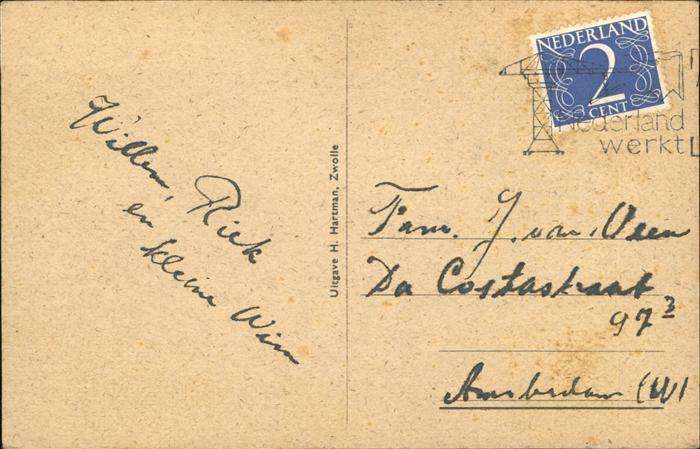 Willem, Riek
en kleine Wim
Uitgave H. Hartman, Zwolle
NEDERLAND
2
CENT
Nederland
werkt
Fam. J. van Veen
Da Costastraat
97 3
Amsterdam (W)